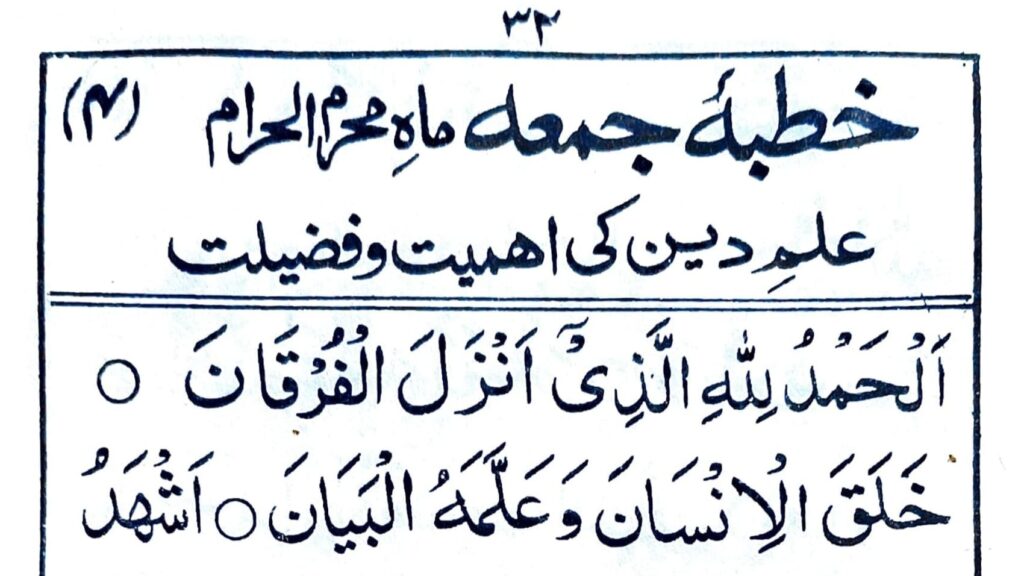 ۳۲
خطبۂ جمعہ ماہِ محرم الحرام (۴)
علمِ دین کی اہمیت و فضیلت
اَلْحَمْدُ لِلّٰهِ الَّذِیْۤ اَنْزَلَ الْفُرْقَانَ ○
خَلَقَ الْاِنْسَانَ وَعَلَّمَهُ الْبَيَانَ ○ اَشْهَدُ